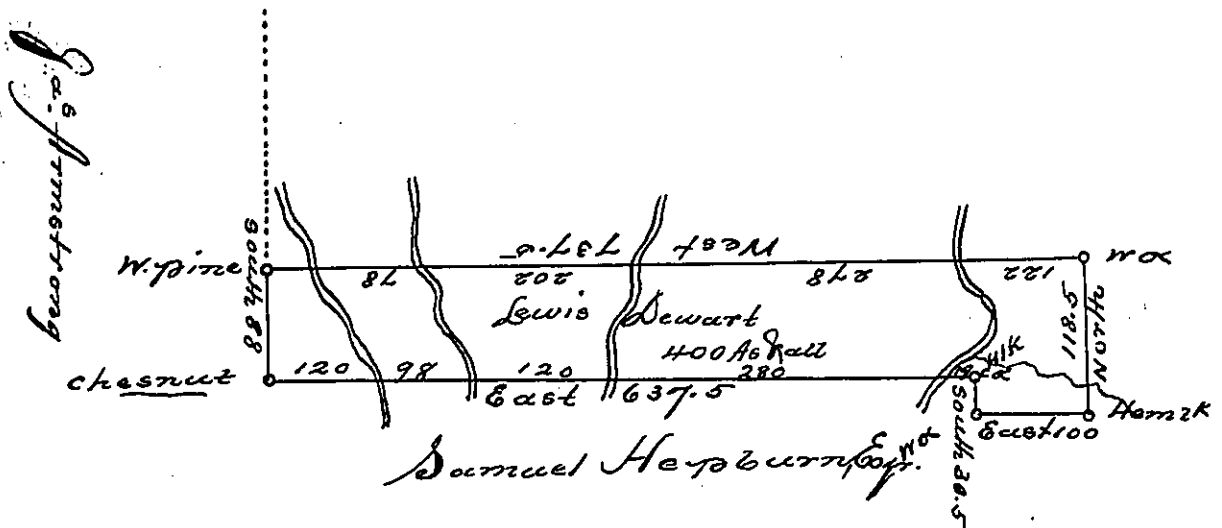 Ja.s Armstrong
W. pine
South 88
chesnut
West 737.5
78
202
278
122
wox
Lewis Dewart
400 As & all
North
118.5
120
98
120
280
East 637.5
Hlk
Hemlk
East 100
South 30.5
Samuel Hepburn, Esqr.